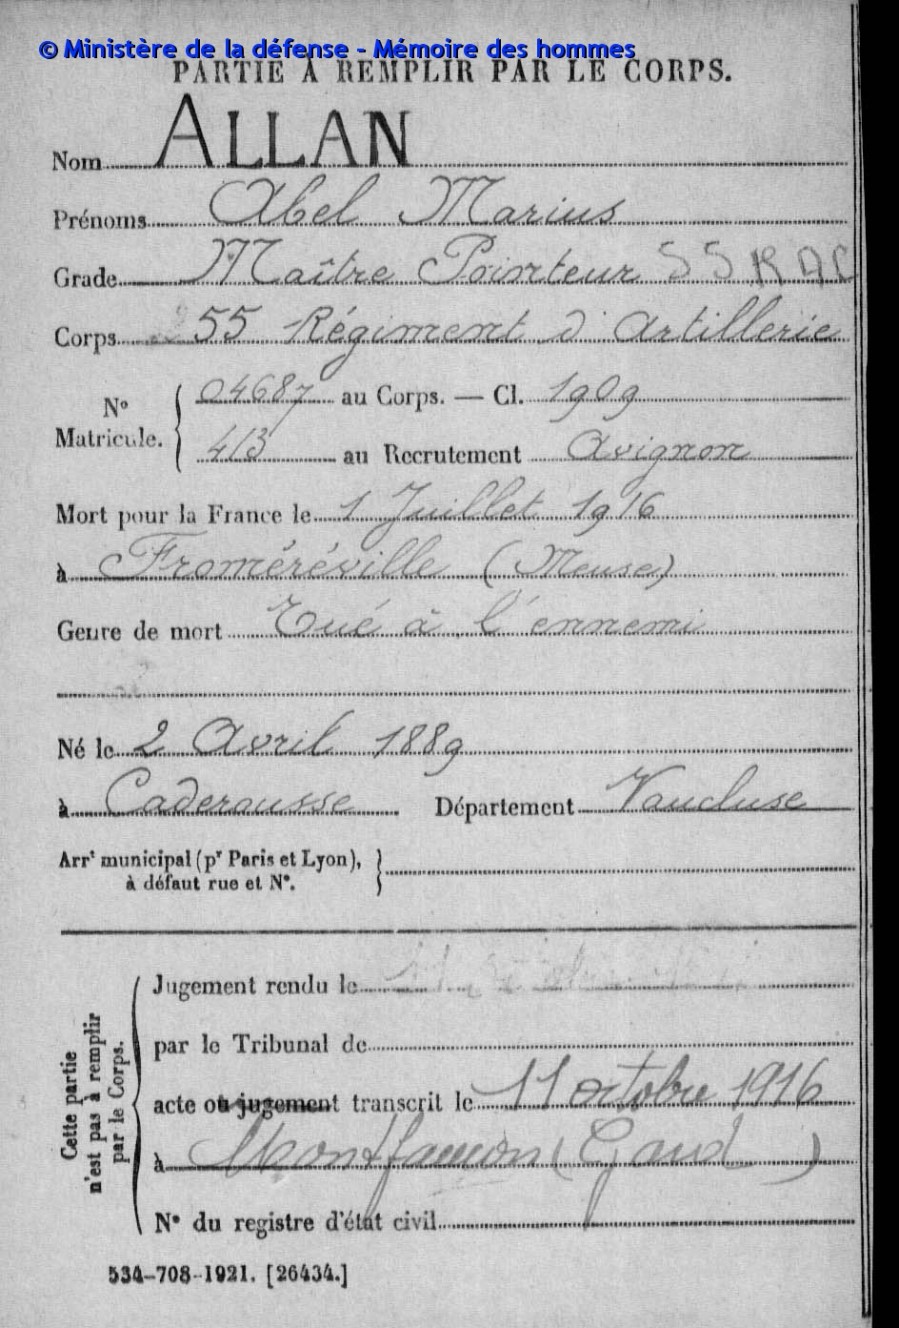 © Ministère de la défense - Mémoire des hommes
PARTIE À REMPLIR PAR LE CORPS.
Nom ALLAN
Prénoms Abel Marius
Grade Maître Pointeur 55 R A C
Corps 55 Régiment d'Artillerie
N° Matricule. 04687 au Corps. — Cl. 1909
413 au Recrutement Avignon
Mort pour la France le 1 Juillet 1916
à Froméréville (Meuse)
Genre de mort Tué à l'ennemi
Né le 2 Avril 1889
à Caderousse Département Vaucluse
Arrt municipal (pr Paris et Lyon),
à défaut rue et N°.
Cette partie
n'est pas à remplir
par le Corps.
Jugement rendu le
par le Tribunal de
acte ou jugement transcrit le 11 octobre 1916
à Montfaucon (Gard)
N° du registre d'état civil
534-708-1921. [26434.]